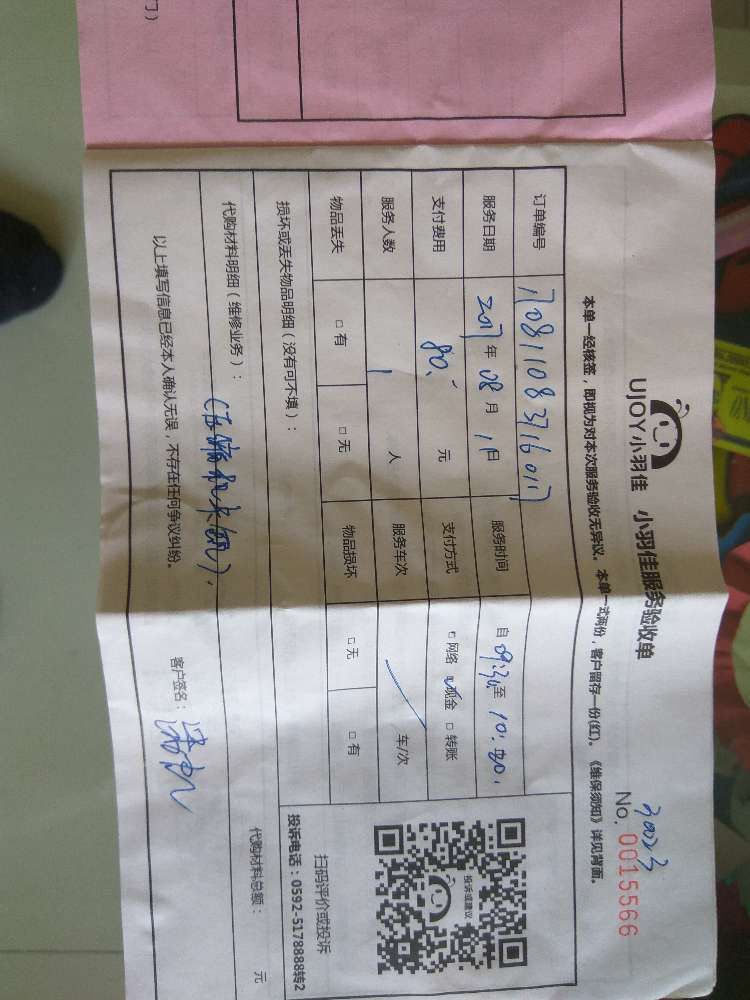 UJOY小羽佳 小羽佳服务验收单
30023
No. 0015566
本单一经核签，即视为对本次服务验收无异议。本单一式两份，客户留存一份(红)。《维保须知》详见背面。
订单编号 170811083716017
服务日期 2017年 08月 1日 服务时间 自 09:30 至 10:20
支付费用 80. 元 支付方式 □网络 ☑现金 □转账
服务人数 1 人 服务车次 / 车/次
物品丢失 □有 □无 物品损坏 □无 □有
损坏或丢失物品明细（没有可不填）：
代购材料明细（维修业务）：
代购材料总额： 元
以上填写信息已经本人确认无误，不存在任何争议纠纷。
客户签名：
投诉或建议
扫码评价或投诉
投诉电话：0592-5178888转2